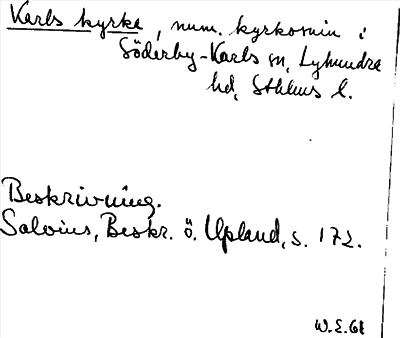 Karls kyrka, num. kyrkoruin i
Söderby-Karls sn, Lyhundra
hd, Sthlms l.
Beskrivning.
Salvius, Beskr. ö. Upland, s. 172.
W.E. 61